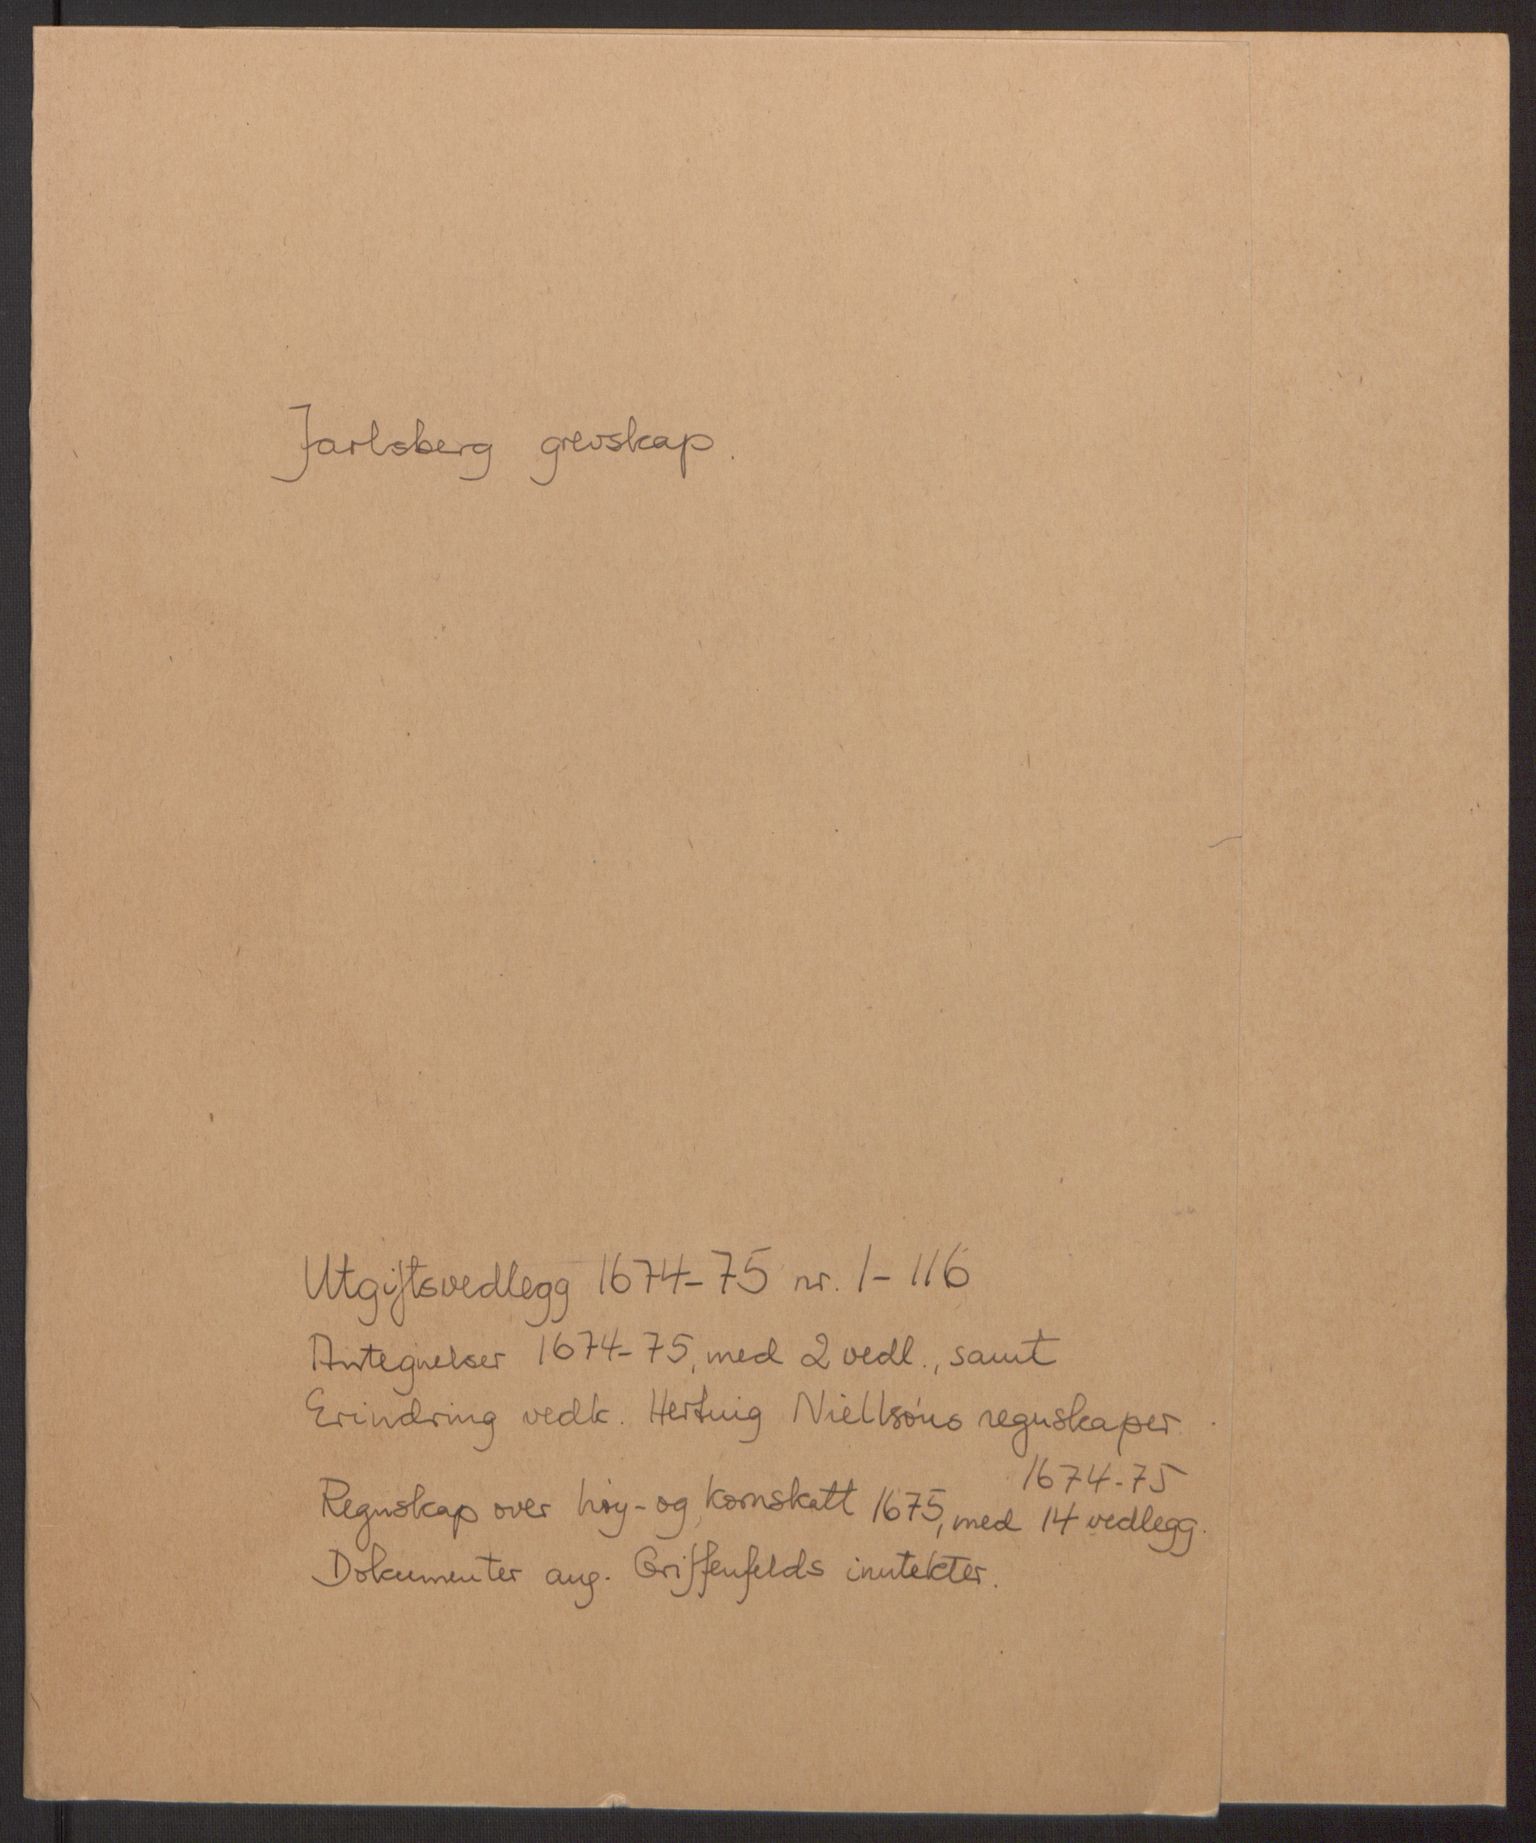 Jarlsberg grevskap.
Utgiftsvedlegg 1674-75 nr. 1-116
Antegnelser 1674-75, med 2 vedl., samt
Erindring vedk. Hertvig Niellsøns regnskaper
1674-75
Regnskap over høy- og kornskatt 1675, med 14 vedlegg.
Dokumenter ang. Griffenfelds inntekter.